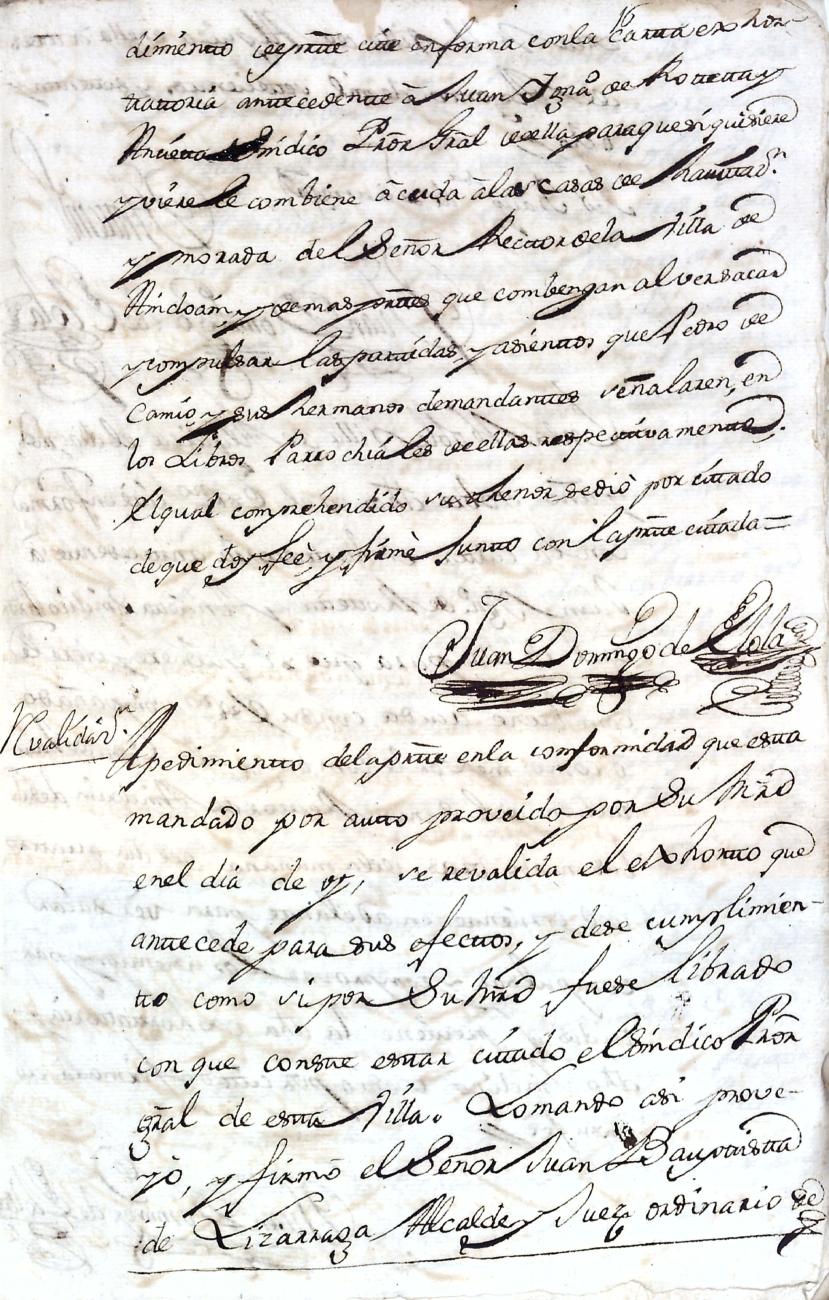 16
dimiento de prte cite en forma con la Carta exhor-
tattoria antecedente â Juan Ignaº de Rotetta y
Síndico Prôr Grâl de ella para que si quisiere
y viere le combiene âcuda â las casas de havittaºn
y morada del Señor Rector de la Villa de
Andoáin, y demas prtes que combengan al ver sacar
y compulsar las partidas, y asientos que Pedro de
Camio, y sus hermanos demandantes señalaren, en
los Libros Parrochiales de ellas respectivamente.
El qual comprehendido su thenor se diò por cittado
de que doy feè, y firmè Junto con la prte cittada =
Juan Domingo de Elola
Revalidaºn
A pedimiento de la prte en la conformidad que esta
mandado por autto proveido por Su Mrd
en el dia de oy, se revalida el exhortto que
anttecede para sus efecttos, y dese cumplimien-
tto como si por Su Mrd fuese librado
con que conste esttar cittado el Síndico Prôr
grâl de esta Villa. Lo mando asi prove-
yò, y firmò el Señor Juan Bauptistta
de Lizarraga Alcalde y Juez ordinario de